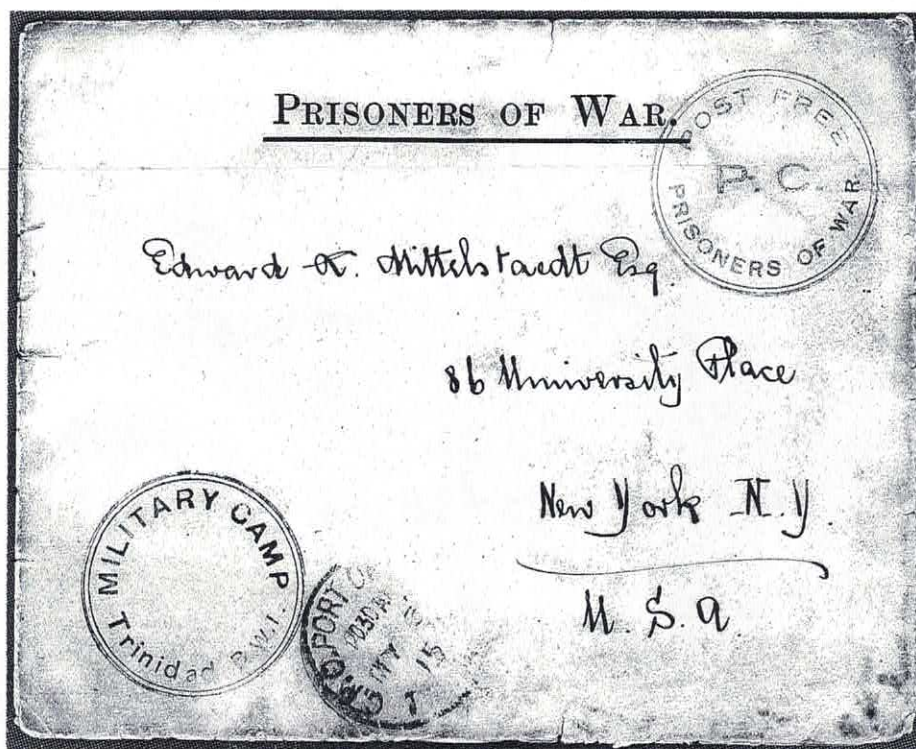 PRISONERS OF WAR.
POST FREE
P. C.
PRISONERS OF WAR
Edward K. Mittelstaedt Esq.
86 University Place
New York N.Y.
U. S. A
MILITARY CAMP
Trinidad B.W.I.
G.P.O. PORT O
MY
15